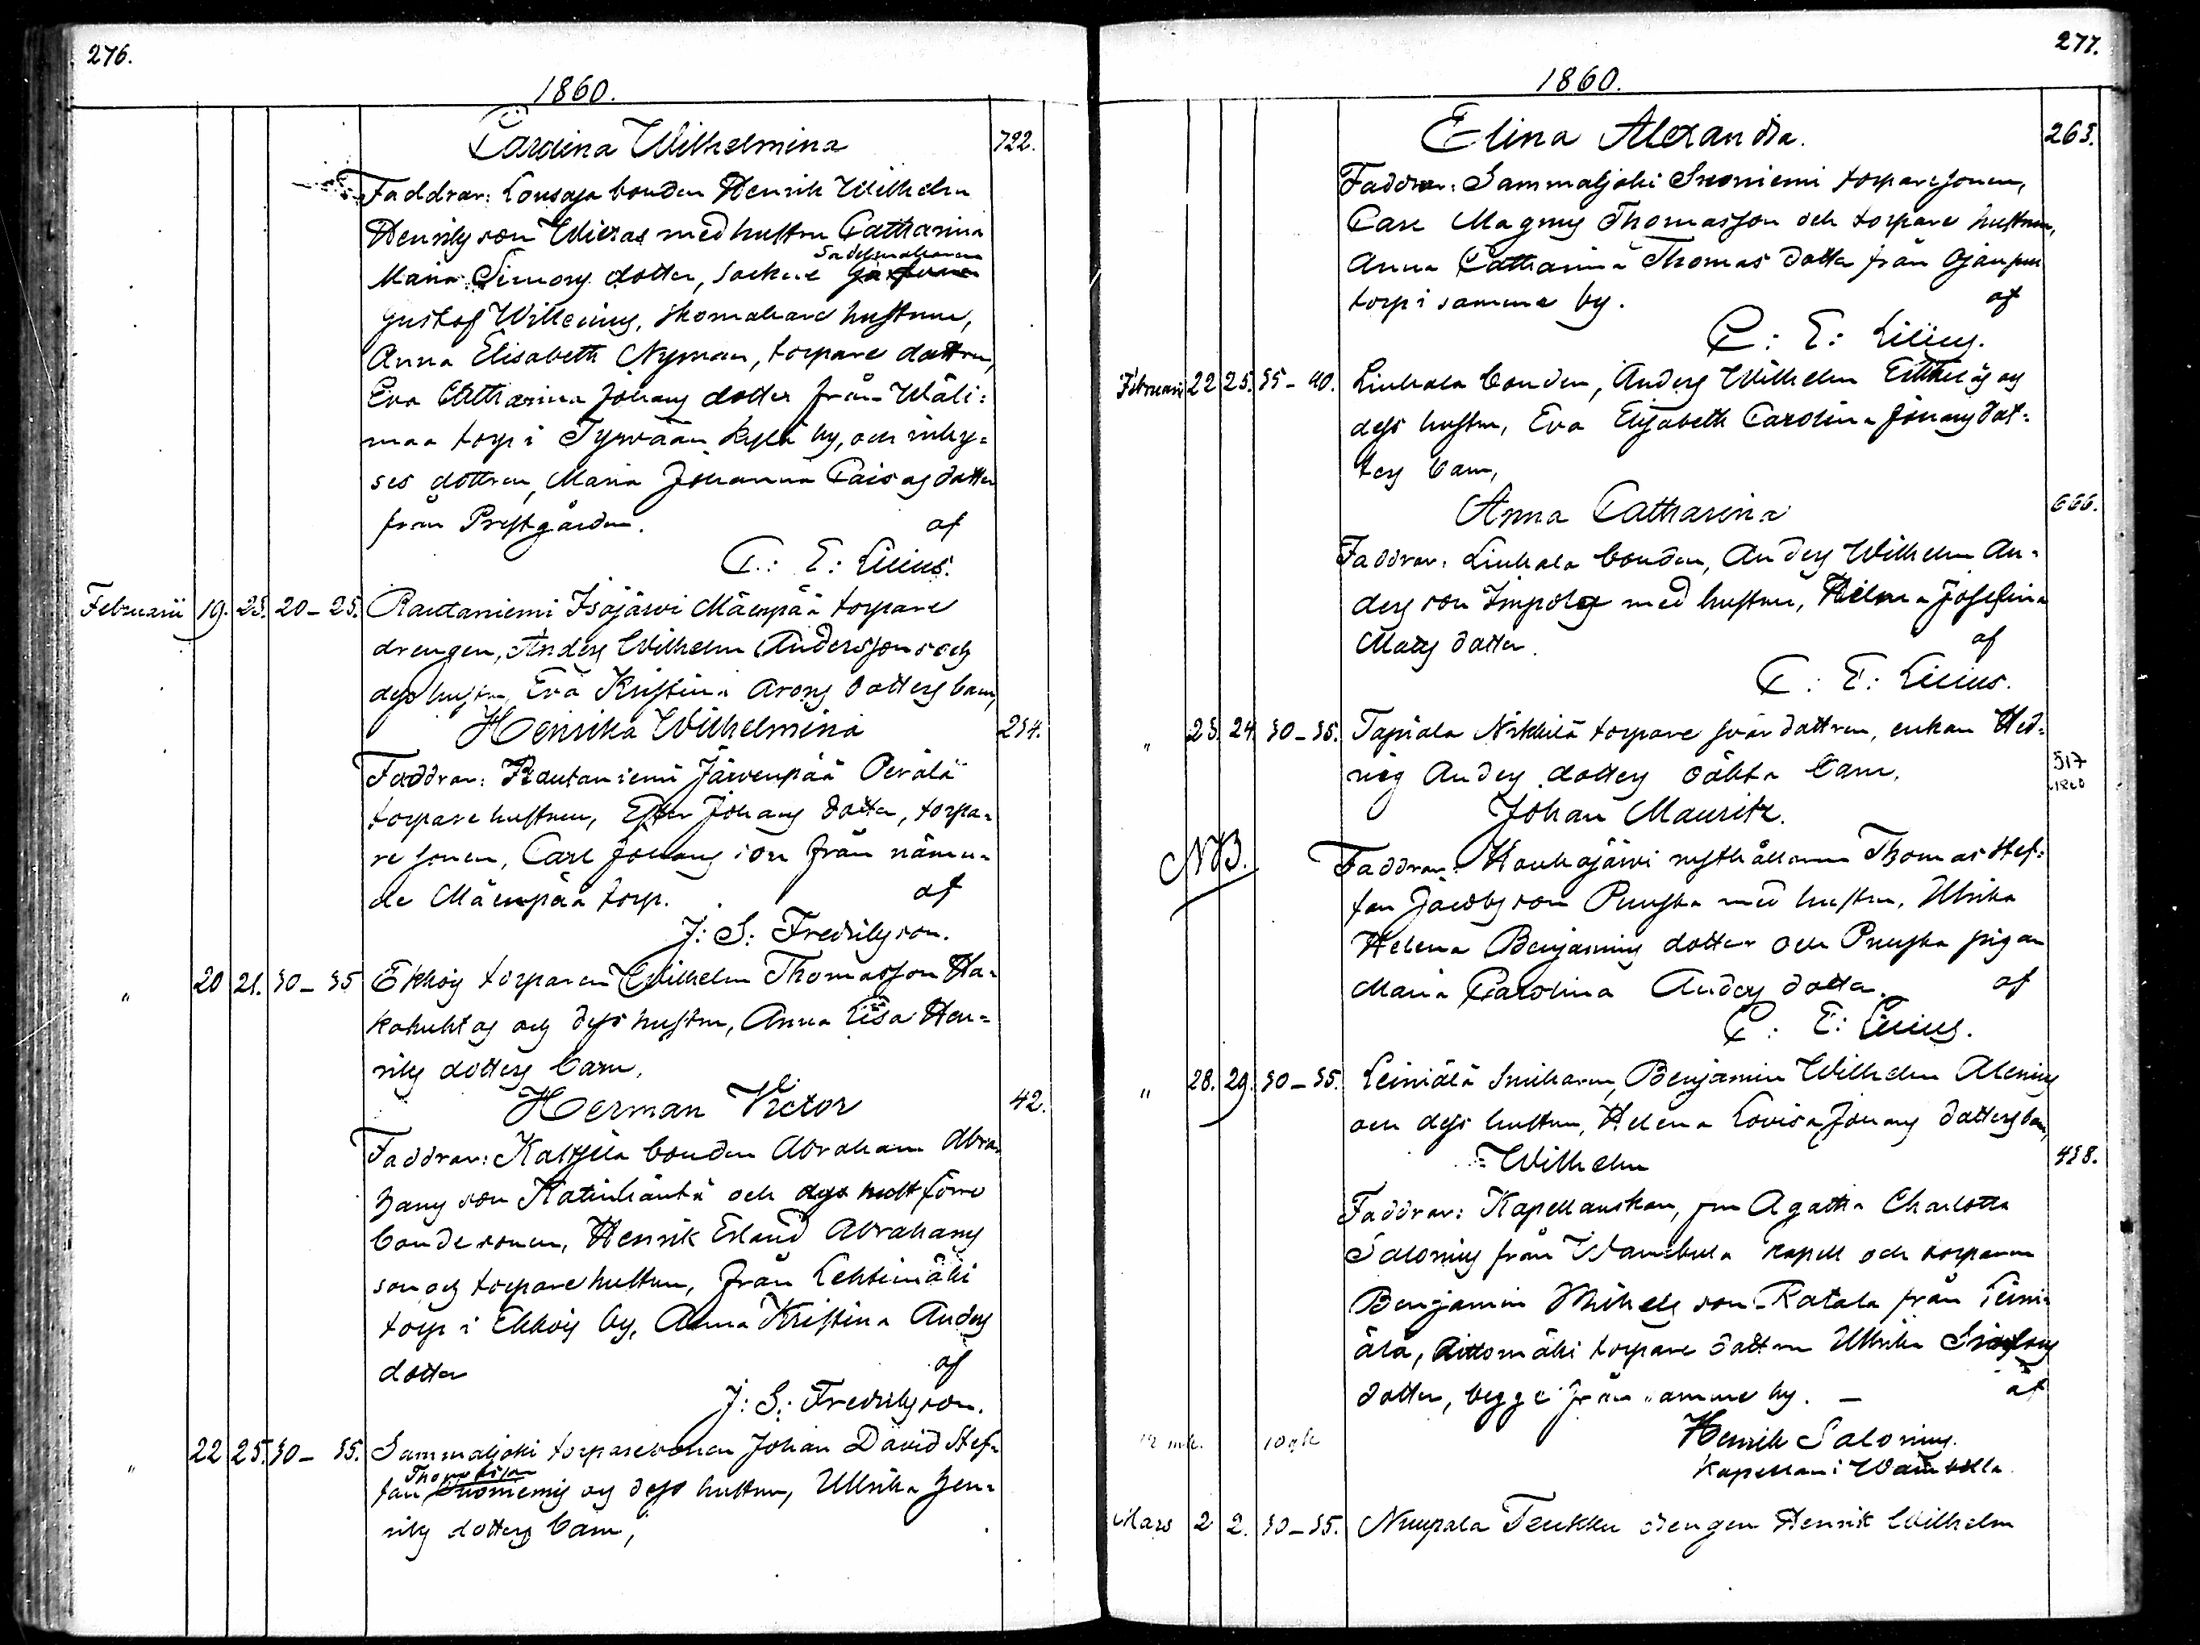 276.
1860.
Carolina Wilhelmina 722.
Faddrar: Lousaja bonden Henrik Wilhelm
Henriksson Wieras med hustru Catharina
Sadelmakaren
Maria Simons dotter, Sockne
Gustaf Willenius, skomakare hustrun,
Anna Elisabeth Nyman, torpare dottren,
Eva Catharina Johans dotter från Wäli=
maa torp i Tyrwään Kylä by, och inhy=
ses dottren, Maria Johanna Caisas dotter
från Prestgården. af
C: E: Lilius.
Februarii 19. 23. 20-25. Rautaniemi Isojärwi Mäenpää torpare
drengen, Anders Wilhelm Anderssons och
dess hustru Eva Kristina Arons dotters barn,
Henrika Wilhelmina 234.
Faddrar: Rautaniemi Järwenpää Perälä
torpare hustrun, Ester Johans dotter, torpa=
re sonen, Carl Johans son från nämn=
de Mäenpää torp. af
J: S: Fredriksson.
" 20 21. 30-35 Ekkois torparen Wilhelm Thomasson Ha=
kokuhtas och dess hustru, Anna Lisa Hen=
riks dotters barn,
Herman Victor 42.
Faddrar: Kaltsila bonden Abraham Abra=
hams son Katinhäntä och dess
bondesonen, Henrik Erland Abrahams
son och torpare hustrun, från Lehtimäki
torp i Ekkois by, Anna Kristina Anders
dotter af
J: S: Fredriksson.
" 22 25. 30-35. Sammaljoki torparesonen Johan David Stef=
fan och dess hustru, Ullrika Hen=
riks dotters barn,
277.
1860.
Elina Alexandra. 263.
Faddrar: Sammaljoki Suoniemi torparesonen,
Carl Magnus Thomasson och torpare hustrun,
Anna Catharina Thomas dotter från Ojanpää
torp i samma by. af
C: E: Lilius.
Februarii 22 25. 35-40. Liuhala bonden, Anders Wilhelm och
dess hustru, Eva Elisabeth Carolina Johans dot=
ters barn,
Anna Catharina 666.
Faddrar: Liuhala bonden, Anders Wilhelm An=
ders son Impola med hustru, Helena Josefina
Mats dotter. af
C: E: Lilius.
" 23. 24. 30-35. Tapiala Nikkilä torpare swär dottren, enkan Hed=
vig Anders dotters oäkta barn. 517
Johan Mauritz.
NB. Faddrar: Houhajärwi rusthållaren Thomas Stef=
fan Jacobs son Punska med hustru, Ulrika
Helena Benjamins dotter och Punska pigan
Maria Carolina Anders dotter. af
C: E: Lilius.
" 28. 29. 30-35. Leiniälä Snickaren, Benjamin Wilhelm Alenius
och dess hustru, Helena Lovisa Johans dotters barn,
Wilhelm 438.
Faddrar: Kapellanskan, fru Agatha Charlotta
Salonius från Wambula kapell och torparen
Benjamin Mihels son Ratala från Leini=
älä, torpare dottren Ullrika
dotter, begge från samme by. - af
Henrik Salonius.
Kapellan i Wambula.
Mars 2 2. 30-35. Nuupala Teukku drengen Henrik Wilhelm